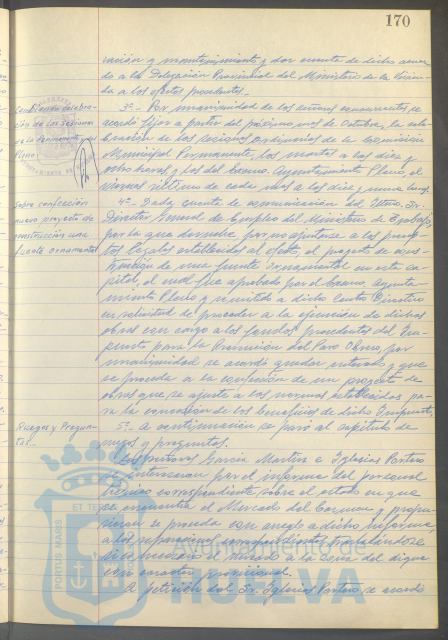 170
ración y mantenimiento y dar cuenta de dicho acuer-
do a la Delegación Provincial del Ministerio de la Vivien-
da a los efectos procedentes.
Cambiando celebra-
ción de las sesiones
de la Permanente y
Pleno
3º- Por unanimidad de los señores concurrentes, se
acordó fijar a partir del próximo mes de Octubre, la cele-
bración de las sesiones ordinarias de la Comisión
Municipal Permanente, los martes a las diez y
ocho horas, y las del Excmo. Ayuntamiento Pleno, el
viernes último de cada mes a las diez y nueve horas.
Sobre confección
nuevo proyecto de
construcción una
fuente ornamental
4º- Dada cuenta de comunicación del Iltmo. Sr.
Director General de Empleo del Ministerio de Trabajo,
por la que devuelve por no ajustarse a los precep-
tos legales establecidos al efecto, el proyecto de cons-
trucción de una fuente ornamental en esta ca-
pital, el cual fue aprobado por el Excmo. Ayunta-
miento Pleno y remitido a dicho Centro Directivo
en solicitud de proceder a la ejecución de dichas
obras con cargo a los fondos procedentes del Im-
puesto para la Prevención del Paro Obrero, por
unanimidad se acordó quedar enterado y que
se proceda a la confección de un proyecto de
obras que se ajuste a las normas establecidas pa-
ra la concesión de los beneficios de dicho Impuesto.
Ruegos y Pregun-
tas.
5º- A continuación se pasó al capítulo de
ruegos y preguntas.
Los señores García Martín e Iglesias Pastero
se interesaron por el informe del personal
técnico correspondiente sobre el estado en que
se encuentra el Mercado del Carmen, y propu-
sieron se proceda con arreglo a dicho informe
a las reparaciones correspondientes, trasladándose
el Mercado a la zona del dique
con carácter provisional.
A petición del Sr. Iglesias Pastero se acordó
PORTUS MARIS ET TE
Ayuntamiento de
HUELVA